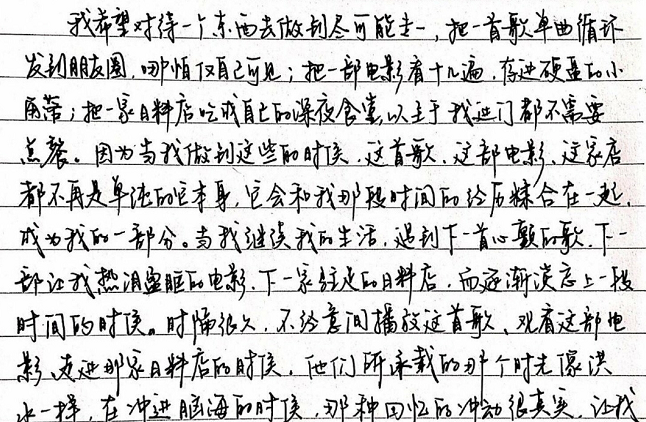 我希望对待一个东西去做到尽可能专一，把一首歌单曲循环
发到朋友圈，哪怕仅自己可见；把一部电影看十几遍，存进硬盘的小
角落；把一家日料店吃成自己的深夜食堂，以至于我进门都不需要
点餐。因为当我做到这些的时候，这首歌、这部电影、这家店
都不再是单纯的它本身，它会和我那段时间的经历糅合在一起，
成为我的一部分。当我继续我的生活，遇到下一首心颤的歌、下一
部让我热泪盈眶的电影、下一家驻足的日料店，而逐渐淡忘上一段
时间的时候。时隔很久，不经意间播放这首歌、观看这部电
影、走进那家日料店的时候，他们所承载的那个时光像洪
水一样，在冲进脑海的时候，那种回忆的冲动很真实，让我